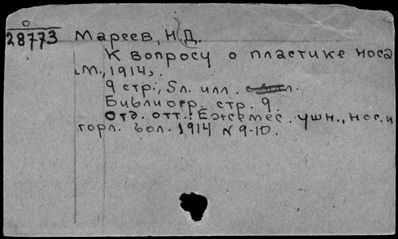 28773 Мареев, Н.Д.
К вопросу о пластике носа
М., 1914.
9 стр., 5 л. илл.
Библиогр. стр. 9.
Отд. отт.: Ежемес. ушн., нос. и
горл. бол. 1914 N 9-10.